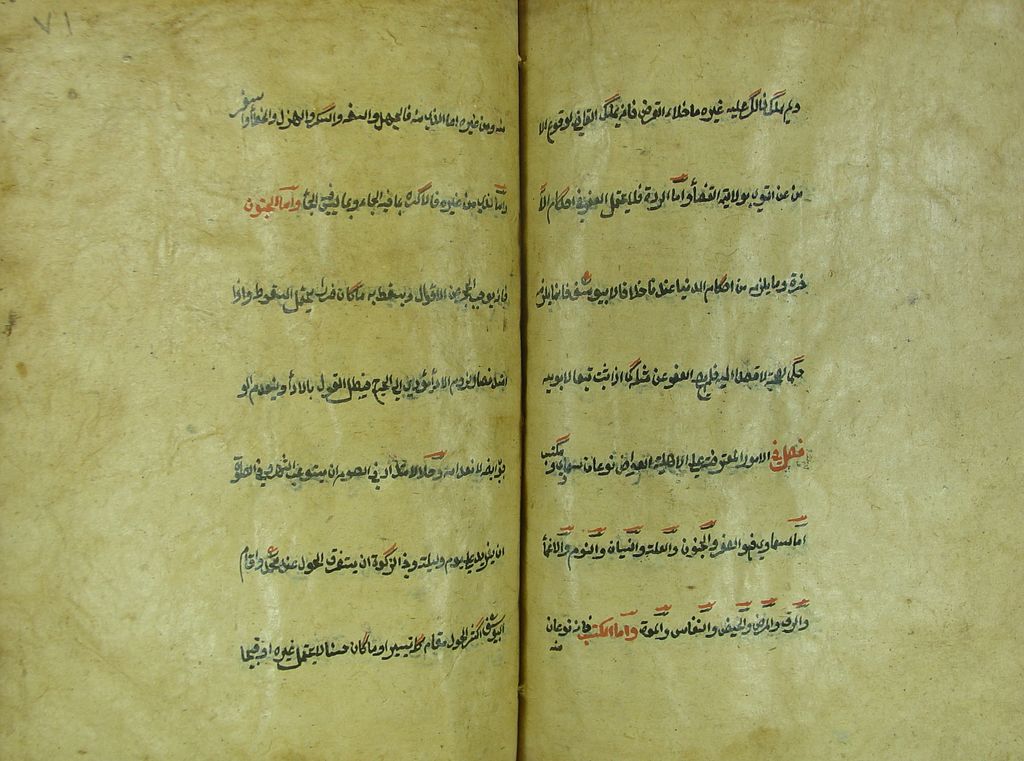 ملك ذلك عليه غيره ما خلاء القرض فانه يملك القاضي لوقوع الا
من عن التوى بولاية القضاء واما الردة فلا يحتمل العفو في احكام الآ
خرة وما يلزمه من احكام الدنيا عندنا خلافا لابي يوسف فانما يلزمه
حكما لصحته لا قصدا اليه فلم يصح العفو عن مثله كما اذا ثبت تبعا لابويه
فصل في الامور المعترضة على الاهلية العوارض نوعان سماوي ومكتسب
اما سماوي فهو الصغر والجنون والعته والنسيان والنوم والاغماء
والرق والمرض والحيض والنفاس والموت واما المكتسب فانه نوعان
منه
٧١
منه ومن غيره اما الذي منه فالجهل والسفه والسكر والهزل والخطأ والسفر
واما الذي من غيره فالاكراه بما فيه الجاء وبما ليس فيه الجاء واما الجنون
فانه يوجب الحجر عن الاقوال ويسقط به ما كان ضررا يحتمل السقوط واذا
امتد فصار لزوم الاداء يؤدي الى الحرج فيبطل القول بالاداء وينعدم الو
جوب ايضا لانعدامه وحد الامتداد في الصوم ان يستوعب الشهر وفي الصلوة
ان يزيد على يوم وليلة وفي الزكوة ان يستغرق الحول عند محمد واقام
ابو يوسف اكثر الحول مقام كله تيسيرا وما كان حسنا لا يحتمل غيره او قبيحا